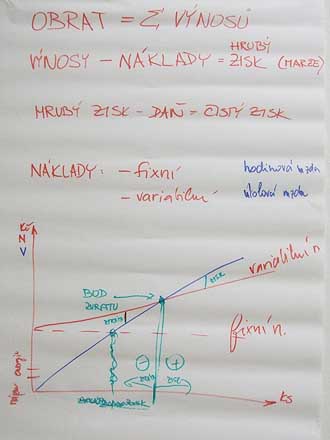 OBRAT = Σ VÝNOSŮ
VÝNOSY – NÁKLADY = HRUBÝ ZISK (MARŽE)
HRUBÝ ZISK – DAŇ = ČISTÝ ZISK
NÁKLADY: – fixní hodinová mzda
– variabilní úkolová mzda
Kč
N
V
BOD
ZVRATU
ZISK
variabilní n.
ztráta
fixní n.
– +
ztráta ZISK
ks